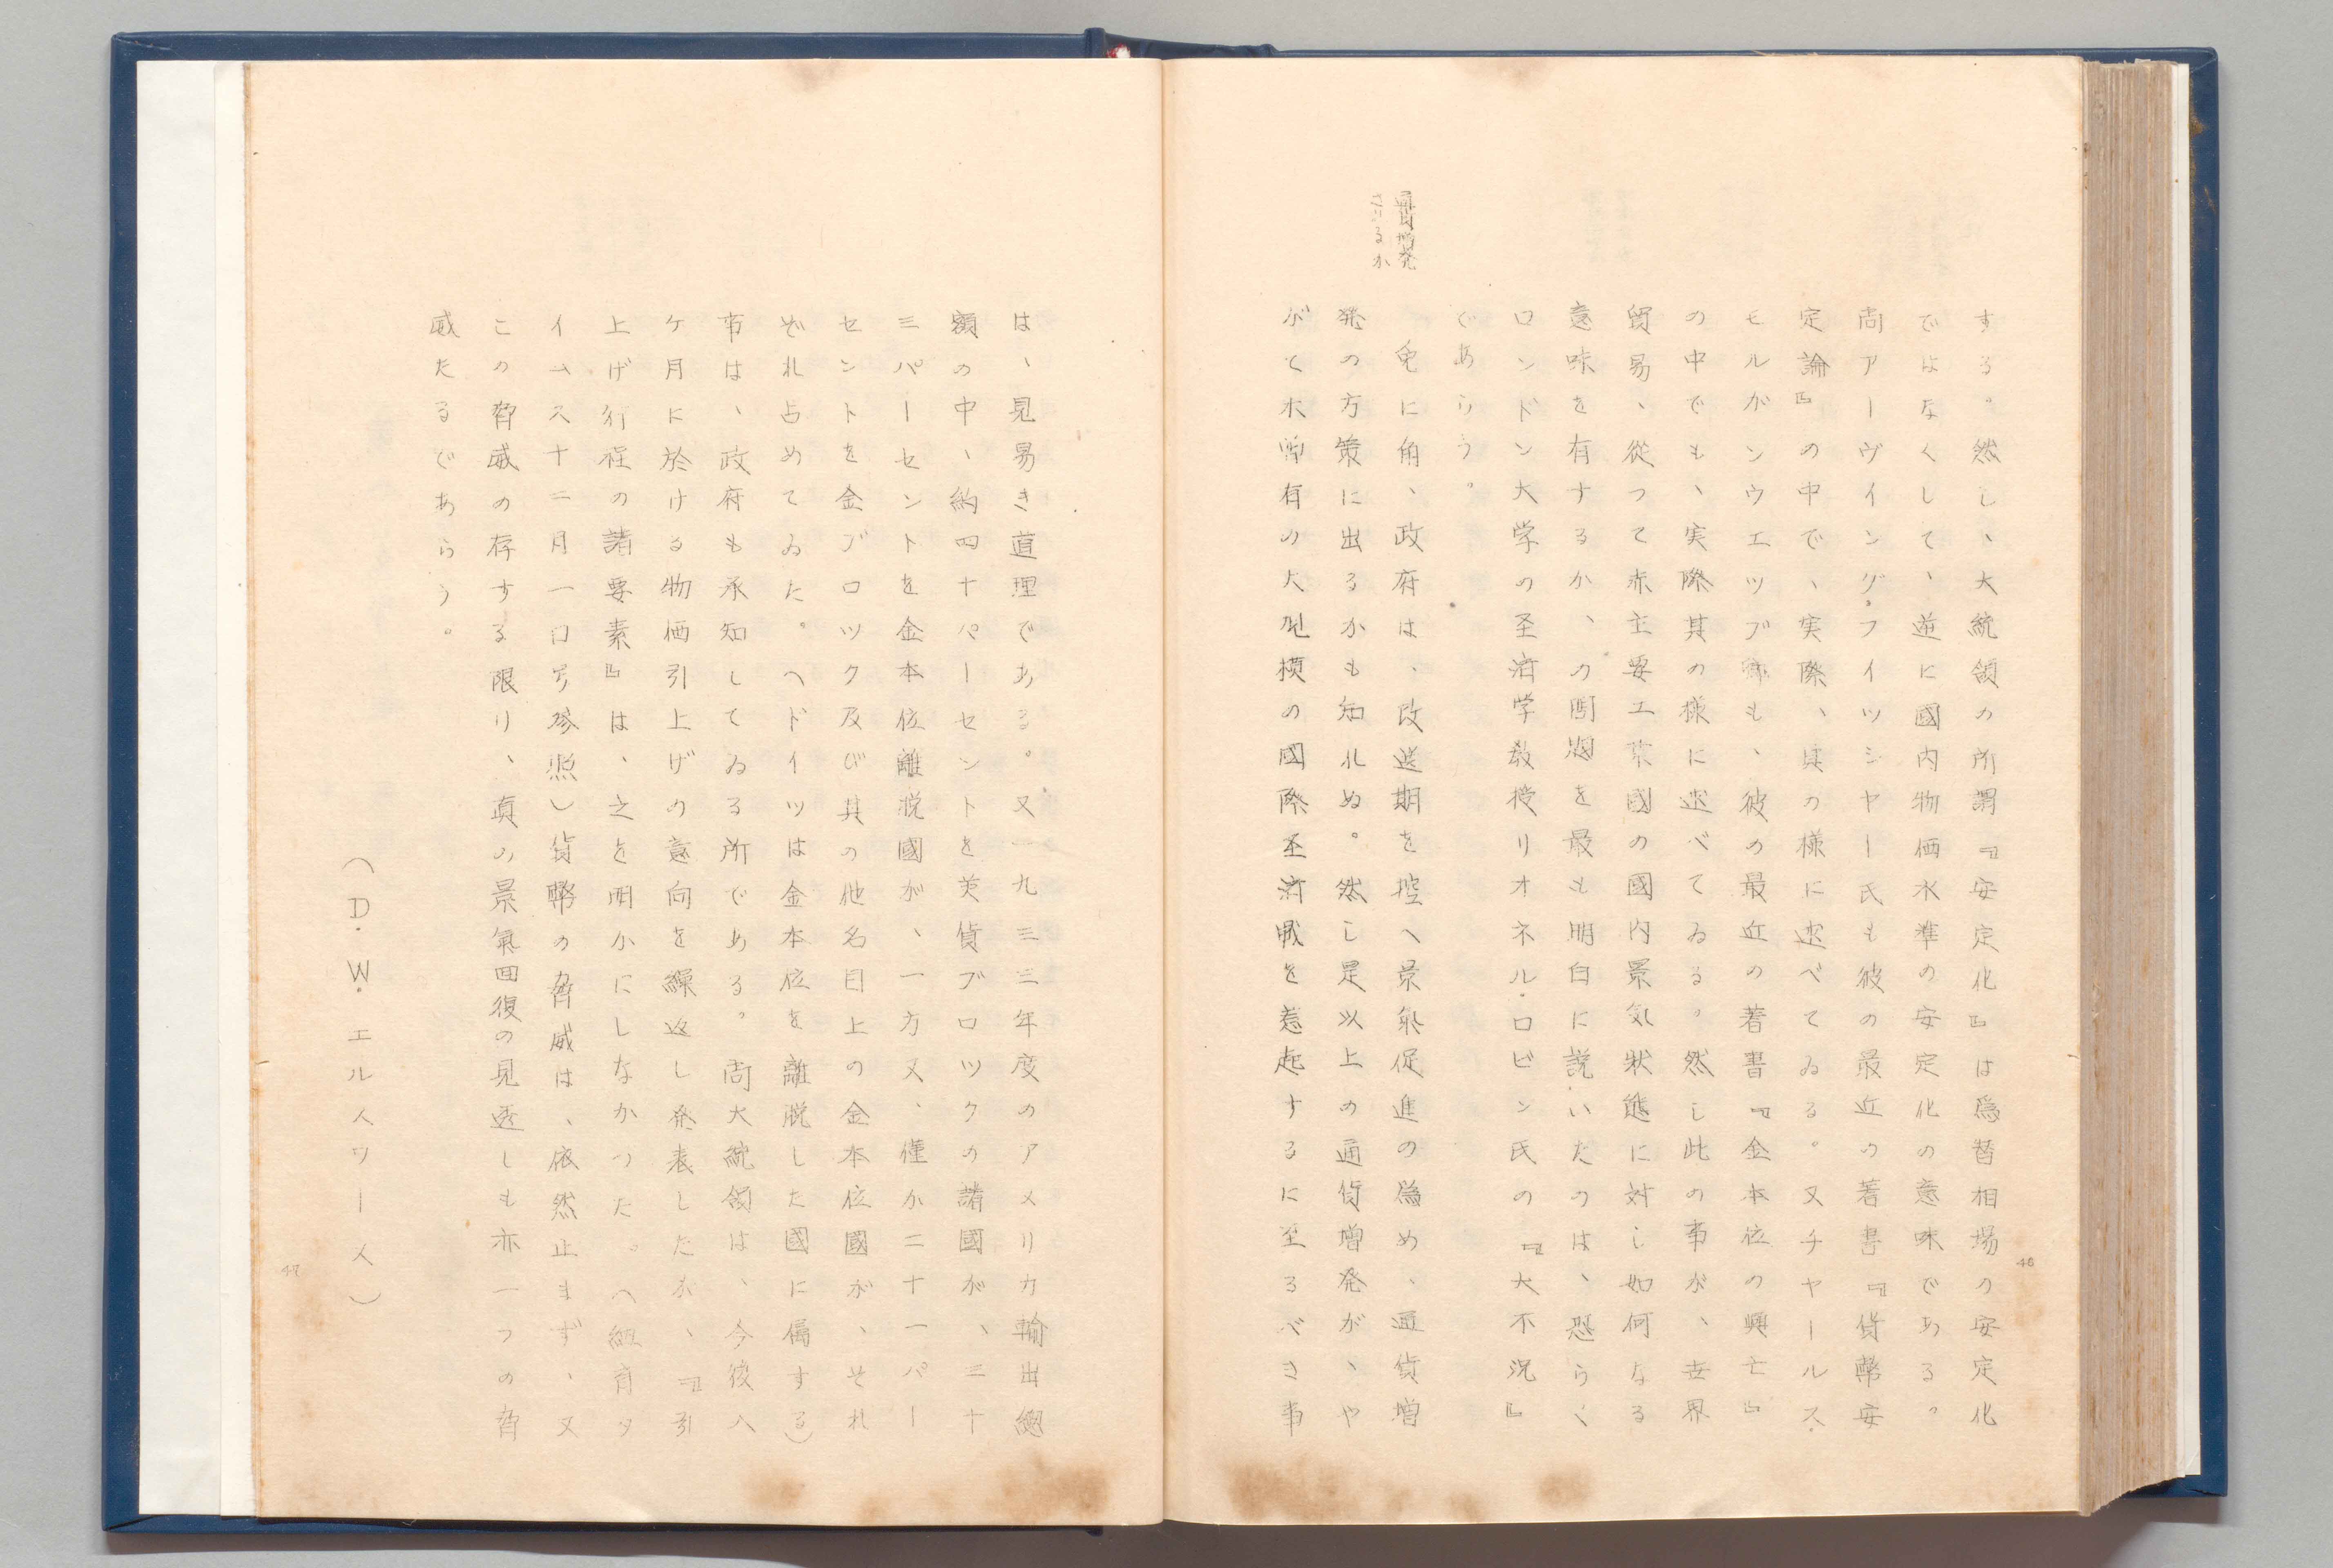 する。然し、大統領の所謂『安定化』は爲替相場の安定化
ではなくして、逆に國内物価水準の安定化の意味である。
尚アーヴイング・フイツシヤー氏も彼の最近の著書『貨幣安
定論』の中で、実際、其の様に述べてゐる。又チヤールス・
モルガンウエツブ卿も、彼の最近の著書『金本位の興亡』
の中でも、実際其の様に述べてゐる。然し此の事が、世界
貿易、從つて赤主要工業國の國内景気狀態に対し如何なる
意味を有するか、の問題を最も明白に説いたのは、恐らく
ロンドン大学の圣済学教授リオネル・ロビン氏の『大不況』
であらう。
通貨増発
さるるか
兎に角、政府は、改選期を控へ景氣促進の爲め、通貨増
発の方策に出るかも知れぬ。然し是以上の通貨増発が、や
がて未曽有の大規模の國際圣済戰を惹起するに至るべき事
46
は、見易き道理である。又一九三三年度のアメリカ輸出總
額の中、約四十パーセントを英貨ブロツクの諸國が、三十
三パーセントを金本位離脱國が、一方又、僅か二十一パー
セントを金ブロツク及び其の他名目上の金本位國が、それ
ぞれ占めてゐた。（ドイツは金本位を離脱した國に属する）
事は、政府も承知してゐる所である。尚大統領は、今後八
ケ月に於ける物価引上げの意向を繰返し発表したが、『引
上げ行程の諸要素』は、之を明かにしなかつた。（紐育タ
イムス十二月一日号參照）貨幣の脅威は、依然止まず、又
この脅威の存する限り、眞の景氣回復の見透しも亦一つの脅
威たるであらう。
（D．W．エルスワース）
47